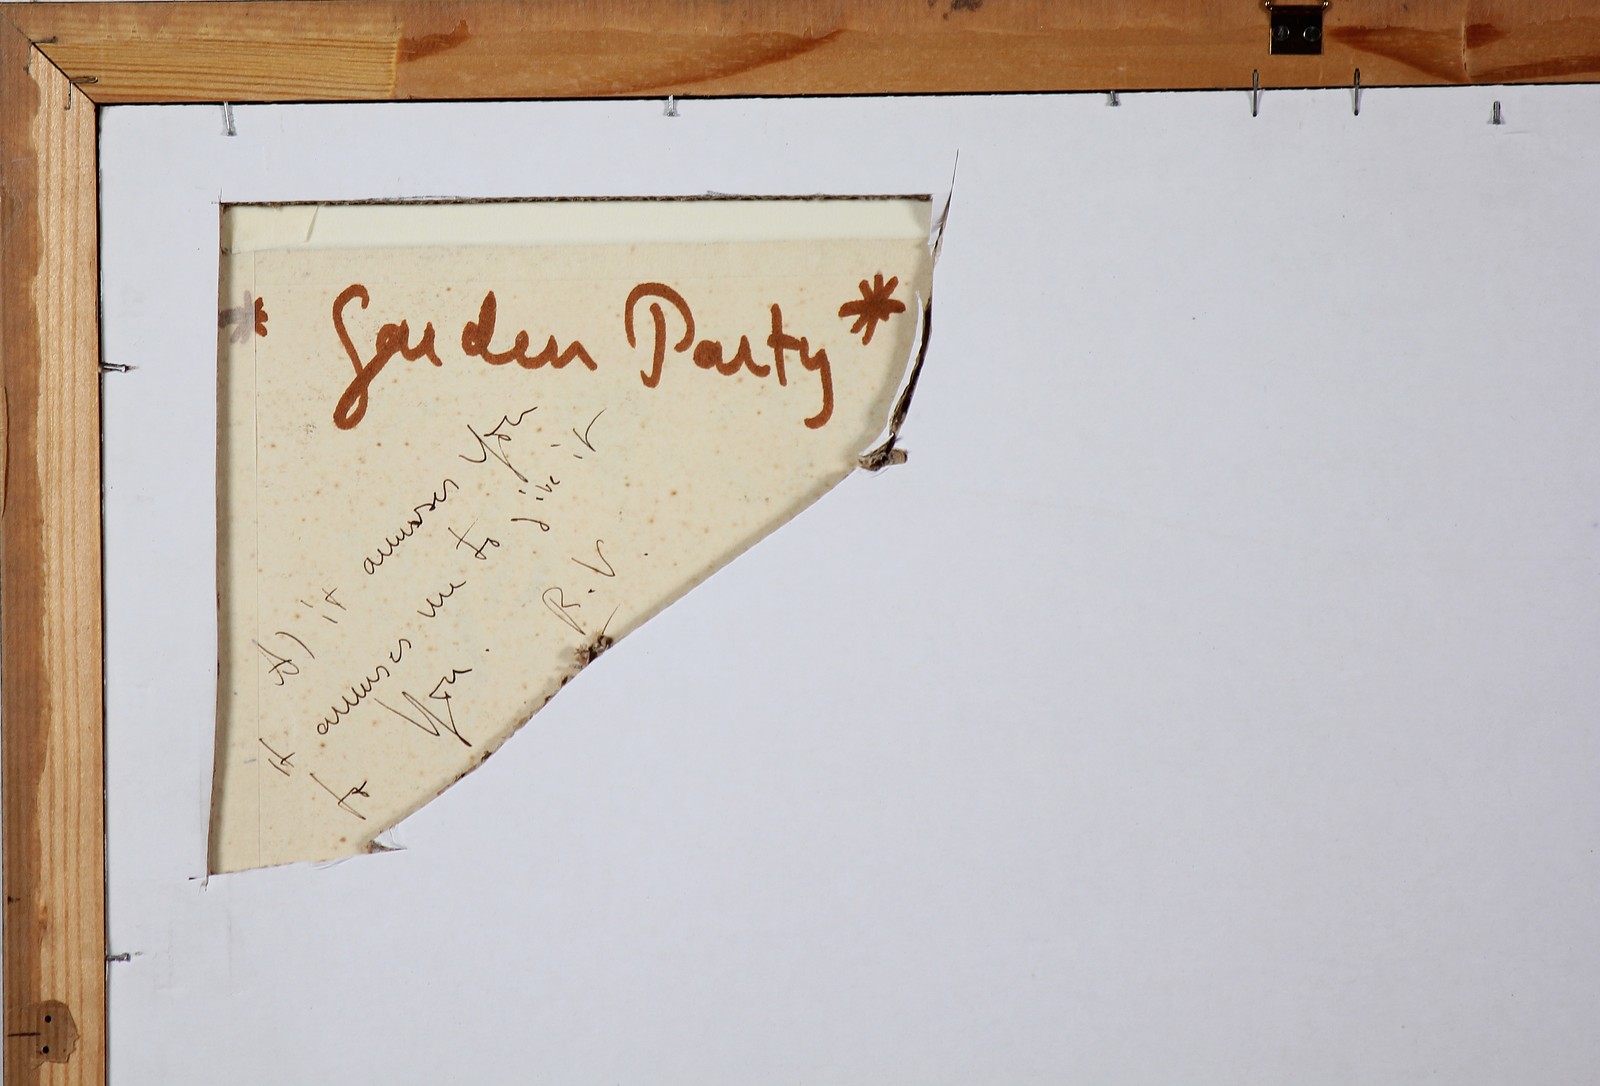 * Garden Party *
As it amuses you
it amuses me to give it
to you. R.V.